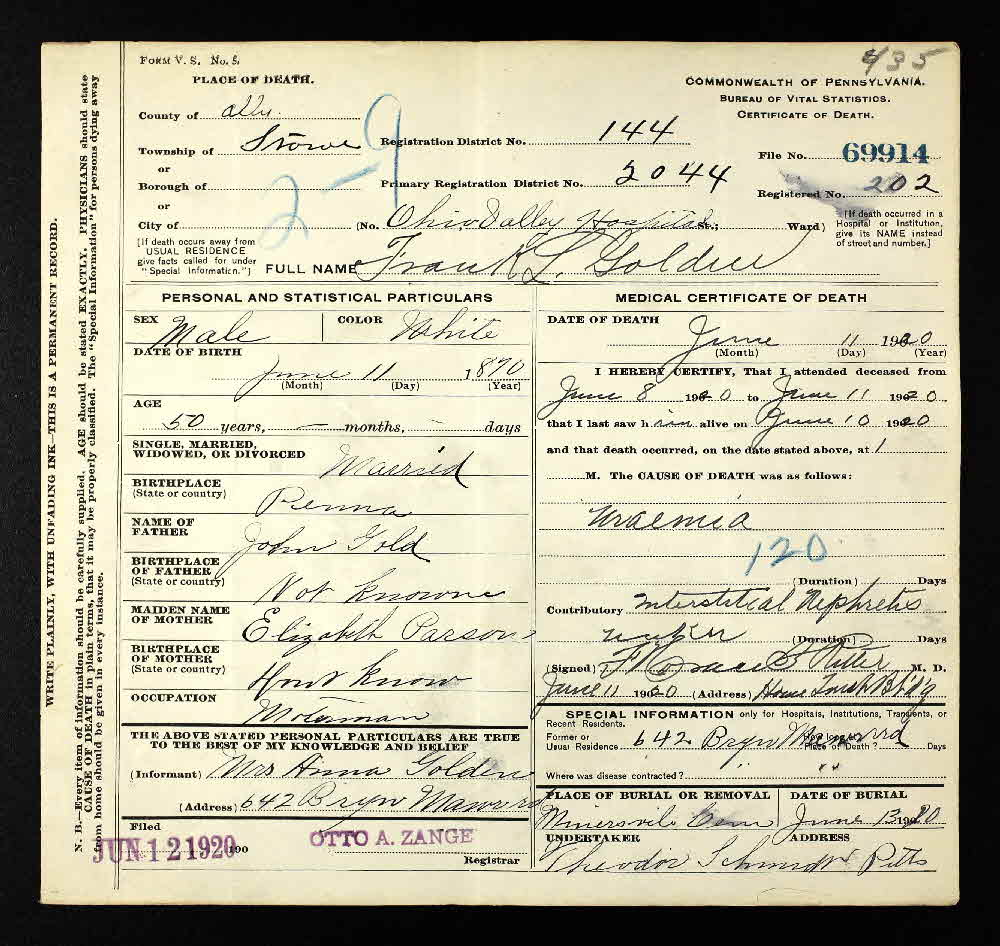 435
FORM V. S. No. 5.
PLACE OF DEATH.
COMMONWEALTH OF PENNSYLVANIA.
BUREAU OF VITAL STATISTICS.
CERTIFICATE OF DEATH.
County of Alle.
Township of Stowe
Registration District No. 144
File No. 69914
or
Borough of
Primary Registration District No. 2044
Registered No. 202
2-9
or
City of
(No. Ohio Valley Hospital St.; Ward)
[If death occurred in a Hospital or Institution, give its NAME instead of street and number.]
[If death occurs away from USUAL RESIDENCE give facts called for under "Special Information."]
FULL NAME Frank L. Golden
PERSONAL AND STATISTICAL PARTICULARS
SEX Male
COLOR White
DATE OF BIRTH
June 11 1870
(Month) (Day) (Year)
AGE
50 years, — months, — days
SINGLE, MARRIED, WIDOWED, OR DIVORCED Married
BIRTHPLACE
(State or country) Penna
NAME OF FATHER John Gold
BIRTHPLACE OF FATHER
(State or country) Not Known
MAIDEN NAME OF MOTHER Elizabeth Parsons
BIRTHPLACE OF MOTHER
(State or country) Dont Know
OCCUPATION
Motorman
THE ABOVE STATED PERSONAL PARTICULARS ARE TRUE
TO THE BEST OF MY KNOWLEDGE AND BELIEF
(Informant) Mrs Anna Golden
(Address) 642 Bryn Mawr rd
Filed
JUN 12 1920 190
OTTO A. ZANGE
Registrar
MEDICAL CERTIFICATE OF DEATH
DATE OF DEATH
June 11 1920
(Month) (Day) (Year)
I HEREBY CERTIFY, That I attended deceased from
June 8 1920 to June 11 1920
that I last saw him alive on June 10 1920
and that death occurred, on the date stated above, at 1
M. The CAUSE OF DEATH was as follows:
Uraemia
120
(Duration) Days
Contributory Interstitical Nephretis
(Duration) Days
(Signed) Ritter M. D.
June 11 1920 (Address)
SPECIAL INFORMATION only for Hospitals, Institutions, Transients, or
Recent Residents.
Former or
Usual Residence 642 Bryn Mawr rd How long at Place of Death? Days
Where was disease contracted?
PLACE OF BURIAL OR REMOVAL
Minersvile Cem
DATE OF BURIAL
June 13 1920
UNDERTAKER
Theodor Schmidt
ADDRESS
Pitts
WRITE PLAINLY, WITH UNFADING INK—THIS IS A PERMANENT RECORD.
N. B.—Every item of information should be carefully supplied. AGE should be stated EXACTLY. PHYSICIANS should state
CAUSE OF DEATH in plain terms, that it may be properly classified. The "Special Information" for persons dying away
from home should be given in every instance.